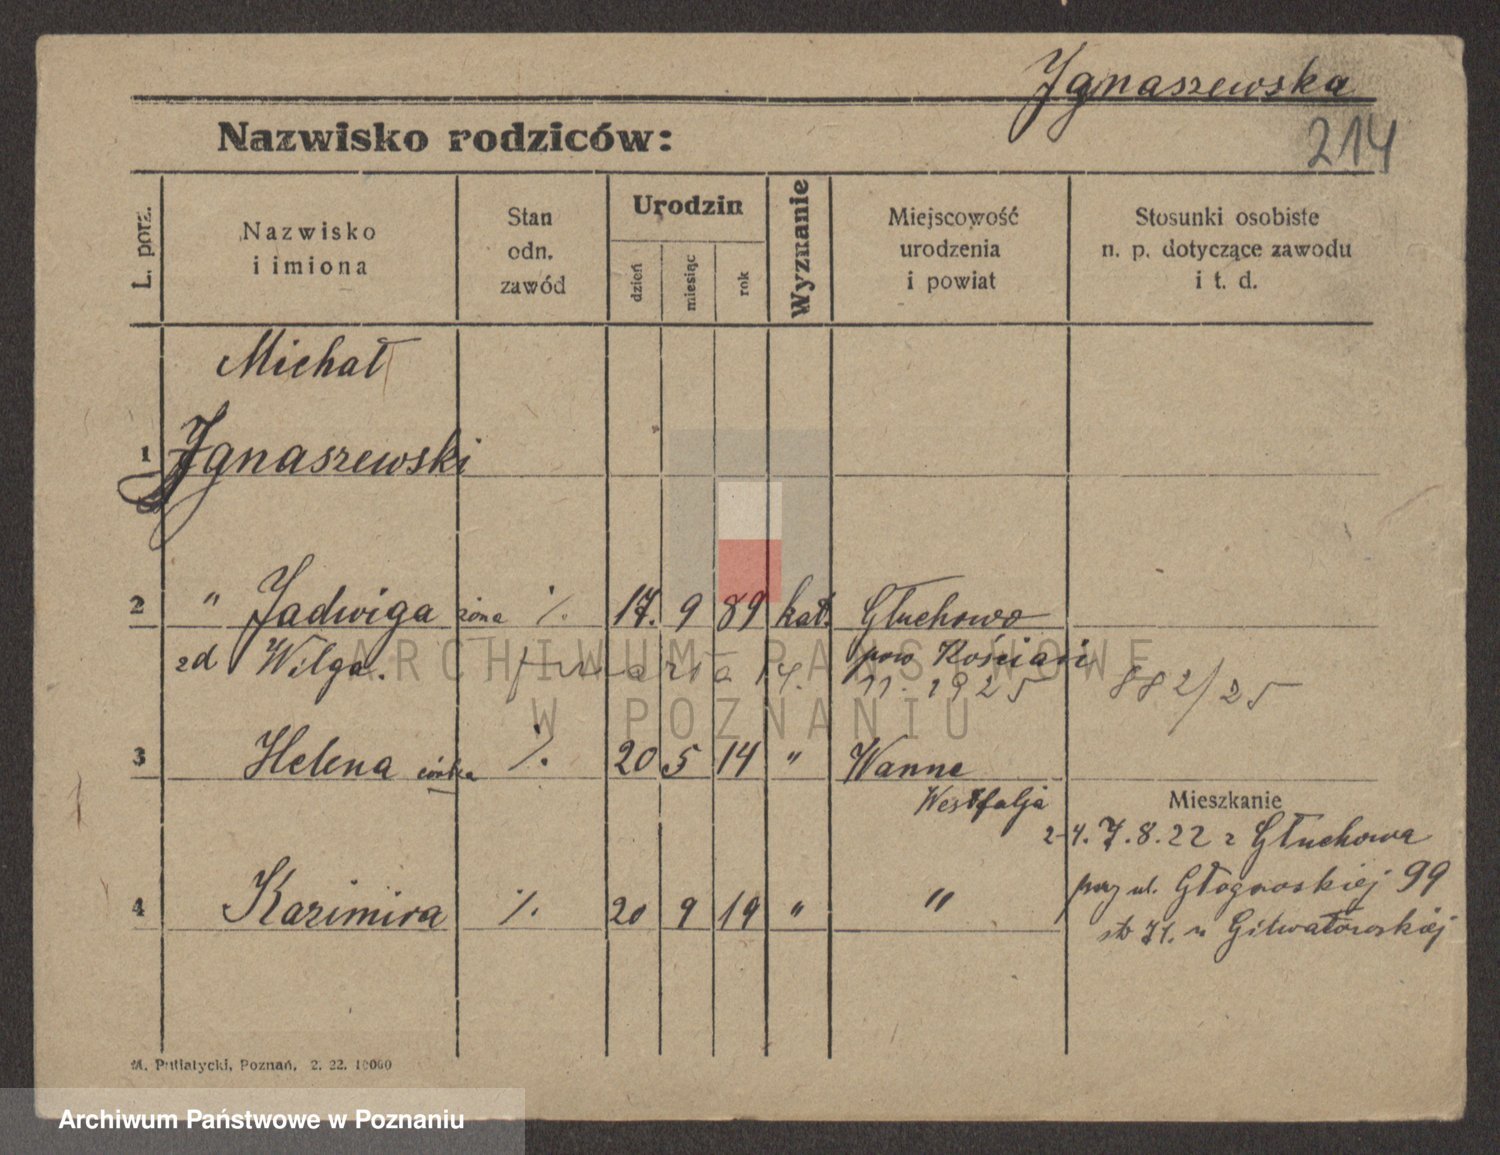 Ignaszewska
214
Nazwisko rodziców:
L. porz.
Nazwisko
i imiona
Stan
odn.
zawód
Urodzin
dzień
miesiąc
rok
Wyznanie
Miejscowość
urodzenia
i powiat
Stosunki osobiste
n. p. dotyczące zawodu
i t. d.
Michał
1 Ignaszewski
2 " Jadwiga żona /. 17. 9 89 kat. Głuchowo
zd Wilga. pow Kościan
umarła 14. 11. 1925 882/25
3 Helena córka /. 20 5 14 " Wanne
Westfalja
Mieszkanie
2-4. 7. 8. 22 z Głuchowa
przy ul. Głogowskiej 99
4 Kazimira /. 20 9 19 " "
st. 71. u
M. Putiatycki, Poznań, 2. 22. 10000
ARCHIWUM PAŃSTWOWE
W POZNANIU
Archiwum Państwowe w Poznaniu